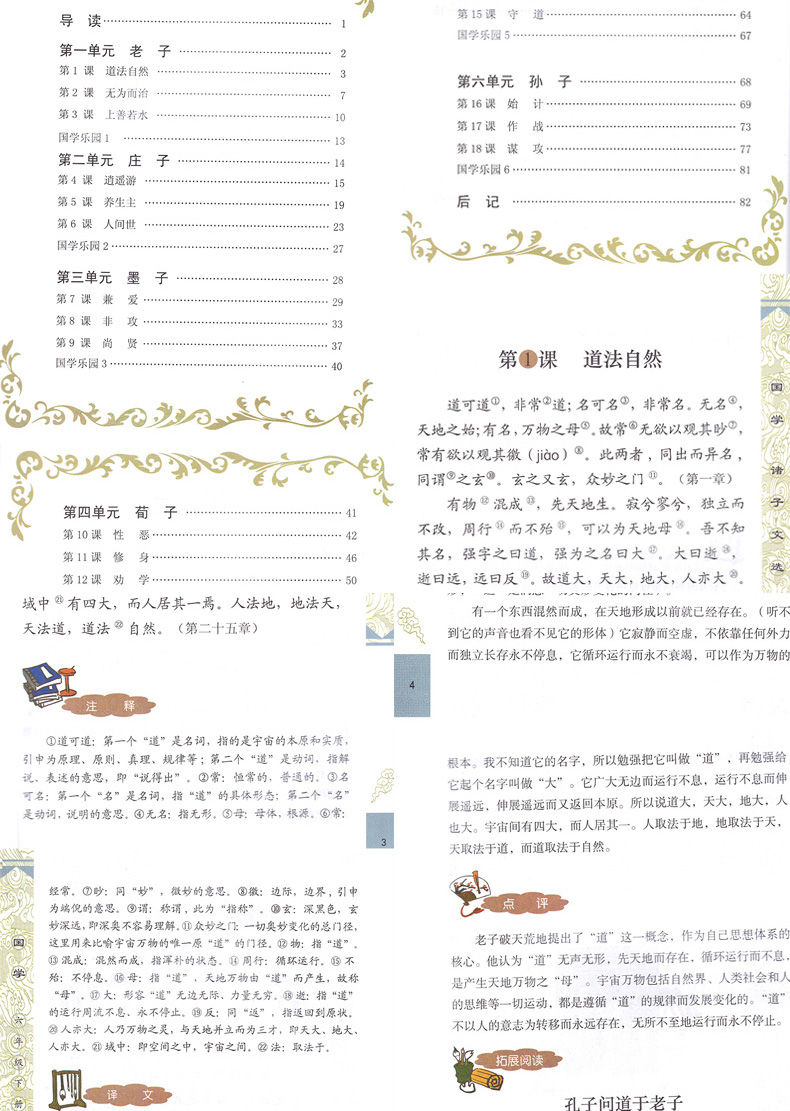 导 读 1
第一单元 老 子 2
第1课 道法自然 3
第2课 无为而治 7
第3课 上善若水 10
国学乐园1 13
第二单元 庄 子 14
第4课 逍遥游 15
第5课 养生主 19
第6课 人间世 23
国学乐园2 27
第三单元 墨 子 28
第7课 兼 爱 29
第8课 非 攻 33
第9课 尚 贤 37
国学乐园3 40
第四单元 荀 子 41
第10课 性 恶 42
第11课 修 身 46
第12课 劝 学 50
第15课 守 道 64
国学乐园5 67
第六单元 孙 子 68
第16课 始 计 69
第17课 作 战 73
第18课 谋 攻 77
国学乐园6 81
后 记 82
国学 诸子文选
第1课 道法自然
道可道①，非常②道；名可名③，非常名。无名④，
天地之始；有名，万物之母⑤。故常⑥无欲以观其眇⑦，
常有欲以观其徼（jiào）⑧。此两者，同出而异名，
同谓⑨之玄⑩。玄之又玄，众妙之门⑪。（第一章）
有物⑫混成⑬，先天地生。寂兮寥兮，独立而
不改，周行⑭而不殆⑮，可以为天地母⑯。吾不知
其名，强字之曰道，强为之名曰大⑰。大曰逝⑱，
逝曰远，远曰反⑲。故道大，天大，地大，人亦大⑳。
域中㉑有四大，而人居其一焉。人法地，地法天，
天法道，道法㉒自然。（第二十五章）
注 释
①道可道：第一个“道”是名词，指的是宇宙的本原和实质，
引申为原理、原则、真理、规律等；第二个“道”是动词，指解
说、表述的意思，即“说得出”。②常：恒常的，普遍的。③名
可名：第一个“名”是名词，指“道”的具体形态；第二个“名”
是动词，说明的意思。④无名：指无形。⑤母：母体，根源。⑥常：
3
国学 六年级下册
经常。⑦眇：同“妙”，微妙的意思。⑧徼：边际，边界，引申
为端倪的意思。⑨谓：称谓，此为“指称”。⑩玄：深黑色，玄
妙深远，即深奥不容易理解。⑪众妙之门：一切奥妙变化的总门径，
这里用来比喻宇宙万物的唯一原“道”的门径。⑫物：指“道”。
⑬混成：混然而成，指浑朴的状态。⑭周行：循环运行。⑮不
殆：不停息。⑯母：指“道”，天地万物由“道”而产生，故称
“母”。⑰大：形容“道”无边无际、力量无穷。⑱逝：指“道”
的运行周流不息、永不停止。⑲反：同“返”，指返回到原状。
⑳人亦大：人乃万物之灵，与天地并立而为三才，即天大、地大、
人亦大。㉑域中：即空间之中，宇宙之间。㉒法：取法于。
译 文
有一个东西混然而成，在天地形成以前就已经存在。（听不
到它的声音也看不见它的形体）它寂静而空虚，不依靠任何外力
而独立长存永不停息，它循环运行而永不衰竭，可以作为万物的
4
根本。我不知道它的名字，所以勉强把它叫做“道”，再勉强给
它起个名字叫做“大”。它广大无边而运行不息，运行不息而伸
展遥远，伸展遥远而又返回本原。所以说道大，天大，地大，人
也大。宇宙间有四大，而人居其一。人取法于地，地取法于天，
天取法于道，而道取法于自然。
点 评
老子破天荒地提出了“道”这一概念，作为自己思想体系的
核心。他认为“道”无声无形，先天地而存在，循环运行而不息，
是产生天地万物之“母”。宇宙万物包括自然界、人类社会和人
的思维等一切运动，都是遵循“道”的规律而发展变化的。“道”
不以人的意志为转移而永远存在，无所不至地运行而永不停止。
拓展阅读
孔子问道于老子